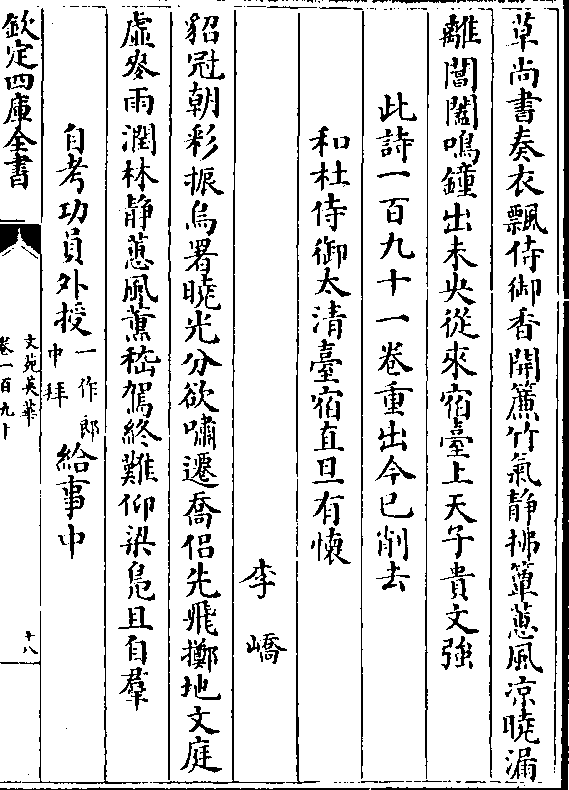 草尚書奏衣飄侍御香開簾竹氣静拂簟蕙風凉曉漏
離閶闔鳴鐘出未央從來宿臺上天子貴文強
此詩一百九十一卷重出今已削去
和杜侍御太清臺宿直旦有懐
李嶠
貂冠朝彩振烏署曉光分欲嘯遷喬侣先飛擲地文庭
虛麥雨潤林静蕙風薫嵇駕終難仰梁鳬且自羣
自考功員外授一作郎中拜給事中
欽定四庫全書
文苑英華
卷一百九十
十八